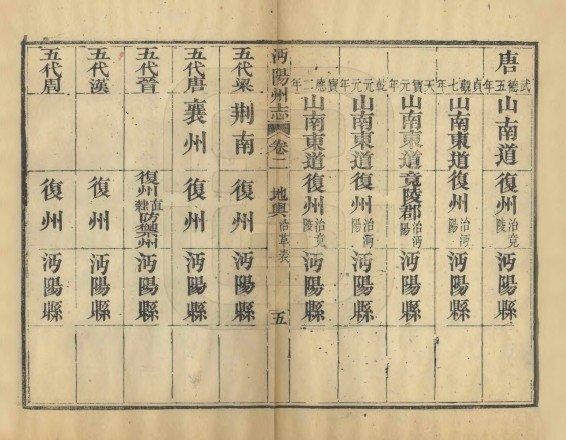 唐
武德五年 山南道 復州 治竟陵 沔陽縣
貞觀七年 山南東道 復州 治沔陽 沔陽縣
天寶元年 山南東道 竟陵郡 治沔陽 沔陽縣
乾元元年 山南東道 復州 治沔陽 沔陽縣
寶應二年 山南東道 復州 治竟陵 沔陽縣
沔陽州志 卷二 地輿 沿革表 五
五代梁 荆南 復州 沔陽縣
五代唐 襄州 復州 沔陽縣
五代晉 復州 直隸 防禦州 沔陽縣
五代漢 復州 沔陽縣
五代周 復州 沔陽縣